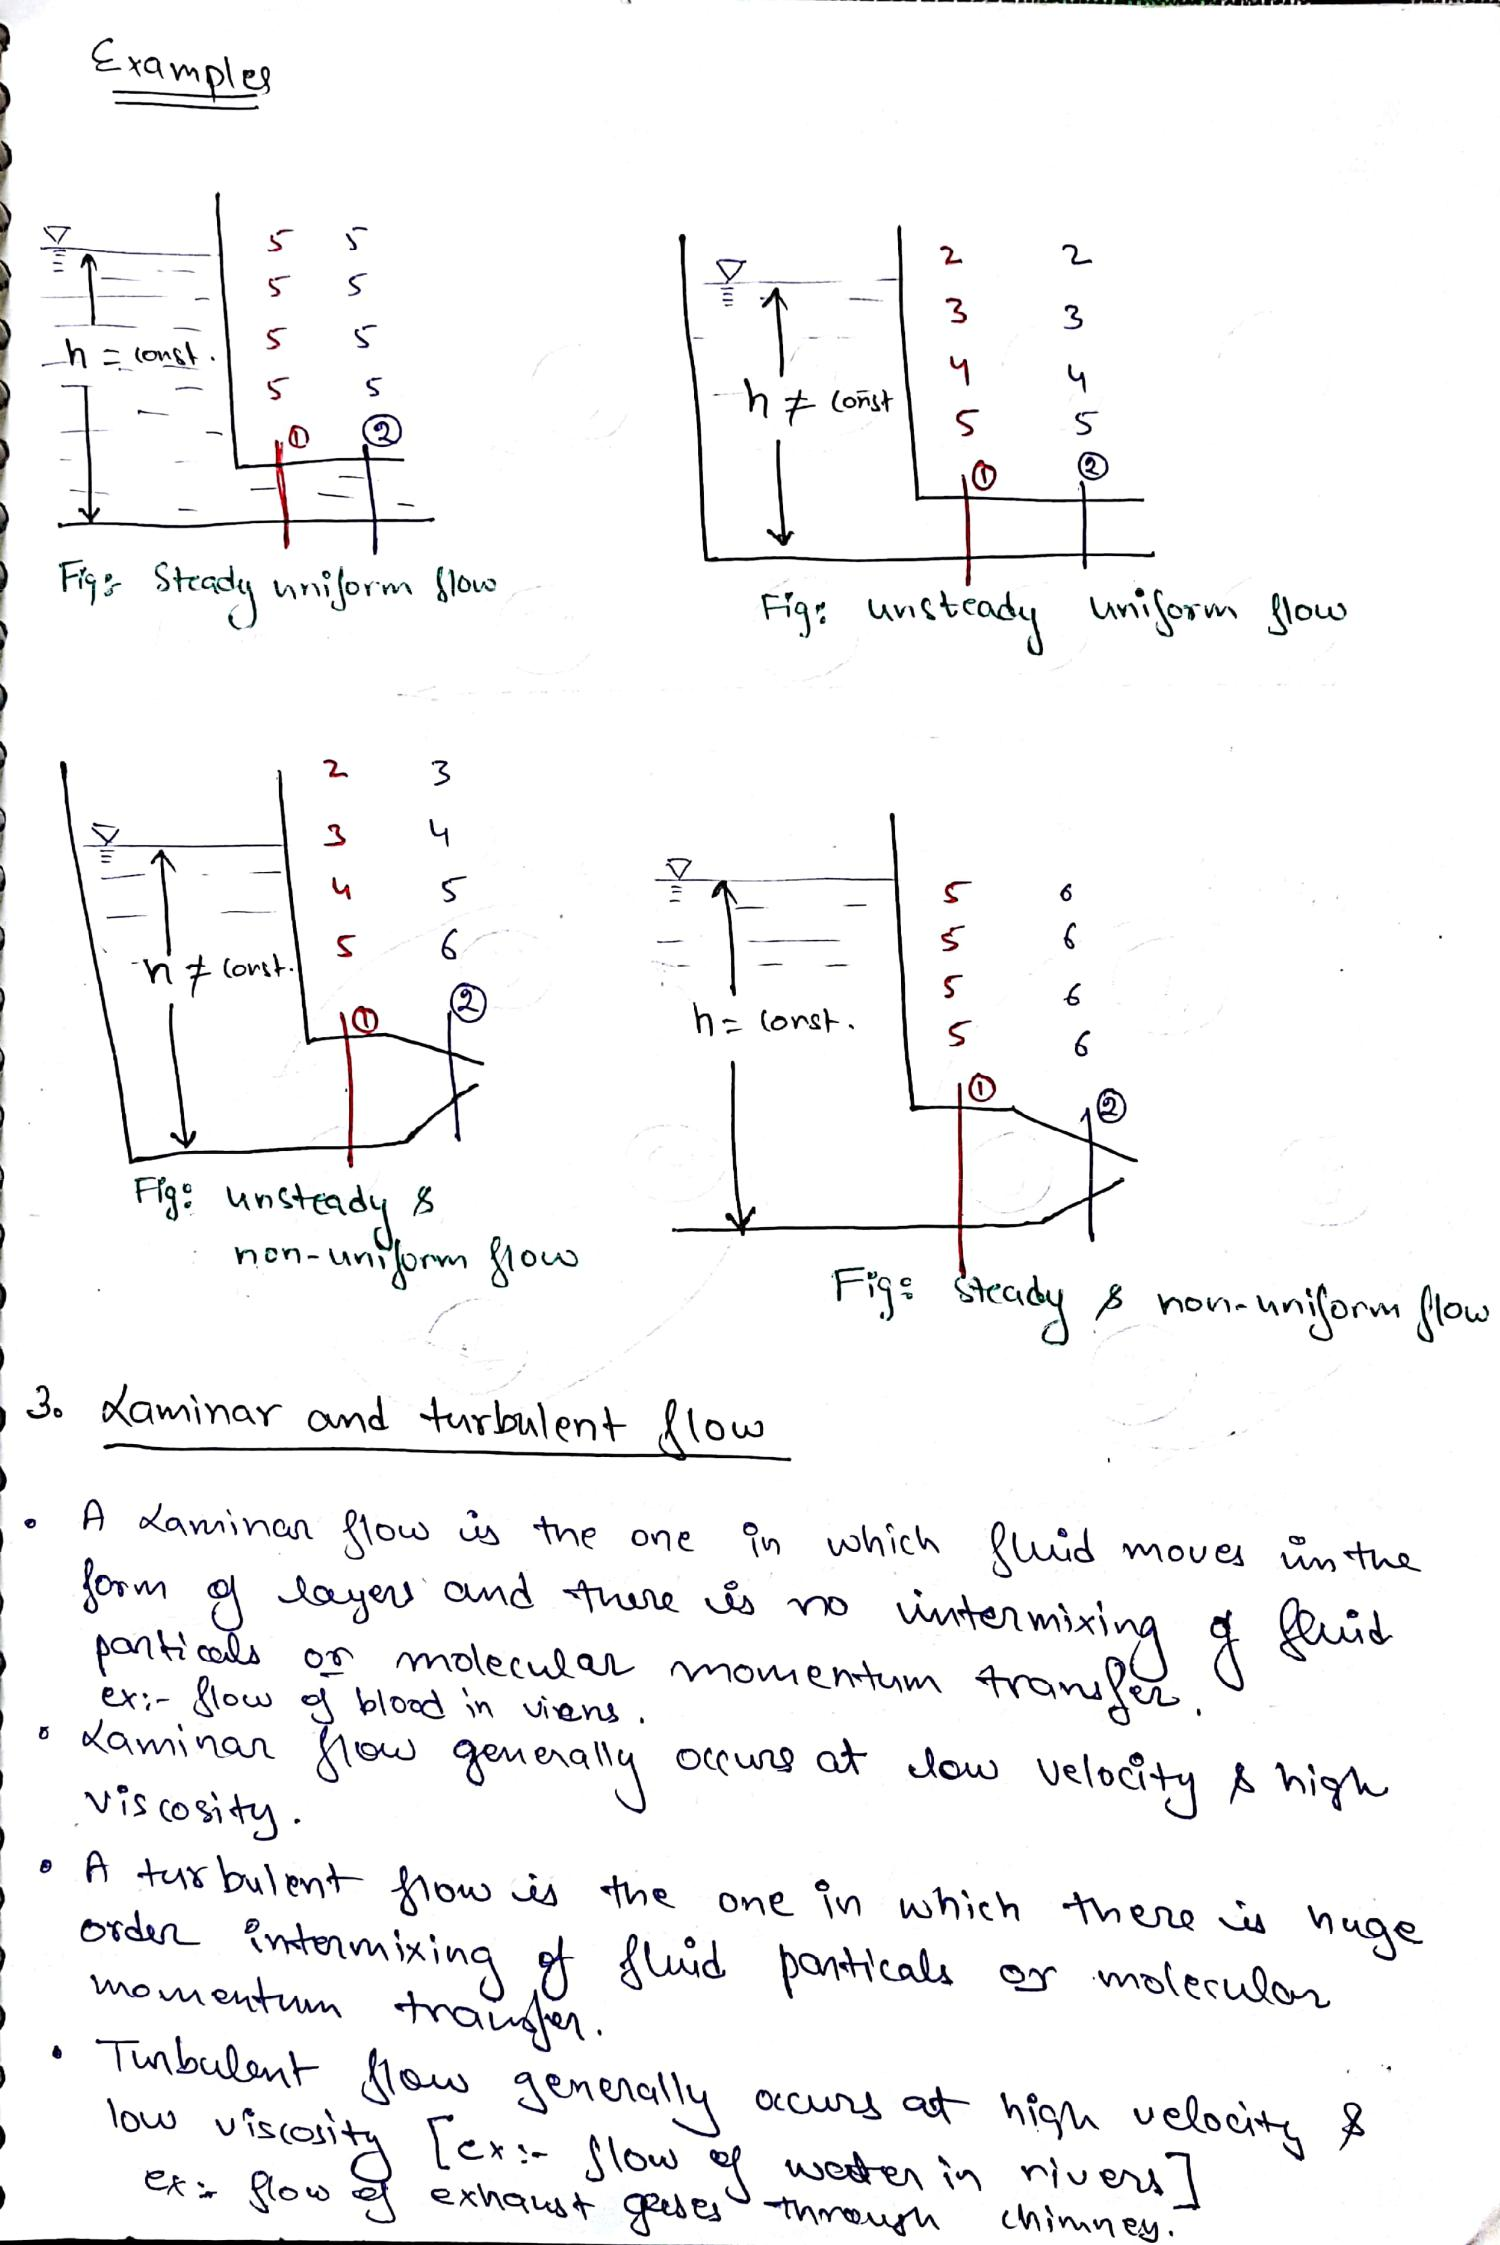 Examples
5 5
5 5
h = const. 5 5
5 5
① ②
Fig:- Steady uniform flow
2 2
3 3
4 4
h ≠ const 5 5
① ②
Fig: unsteady uniform flow
2 3
3 4
4 5
h ≠ const. 5 6
① ②
Fig: unsteady &
non-uniform flow
5 6
5 6
5 6
h = const. 5 6
① ②
Fig: steady & non-uniform flow
3. Laminar and turbulent flow
• A Laminar flow is the one in which fluid moves in the
form of layers and there is no intermixing of fluid
particals or molecular momentum transfer.
ex:- flow of blood in viens.
• Laminar flow generally occurs at low velocity & high
viscosity.
• A turbulent flow is the one in which there is huge
order intermixing of fluid particals or molecular
momentum transfer.
• Turbulent flow generally occurs at high velocity &
low viscosity [ex:- flow of water in rivers]
ex:- flow of exhaust gases through chimney.